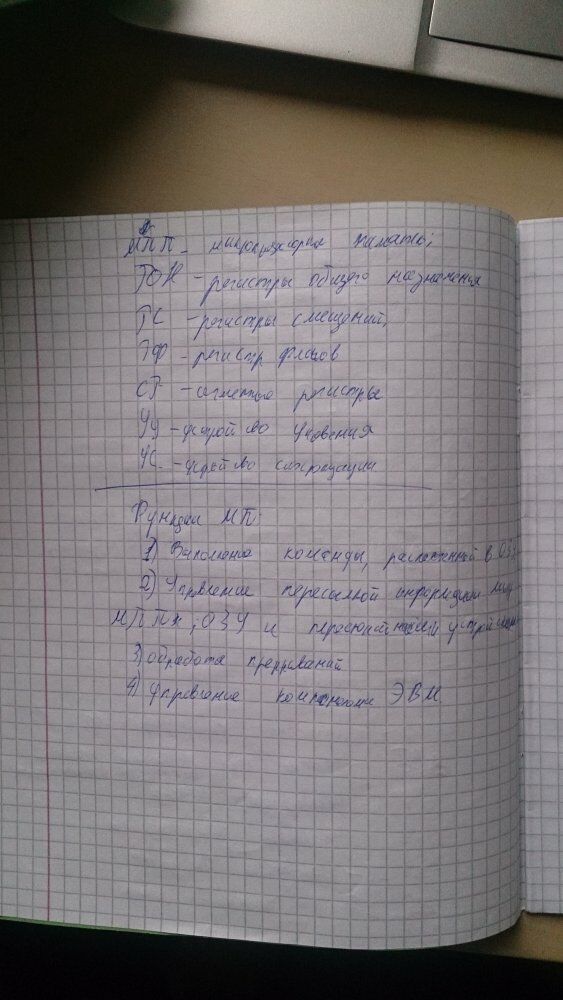 МПП - микропроцессорная память;
РОН - регистры общего назначения
РС - регистры смещений;
РФ - регистр флагов
СР - сегментные регистры
УУ - устройство
УС - устройство синхронизации
Функции МП:
1) Выполнение команды, расположенной в ОЗУ
2) Управление пересылкой информации между
МПП, ОЗУ и
3) обработка прерываний
4) Управление компонентами ЭВМ